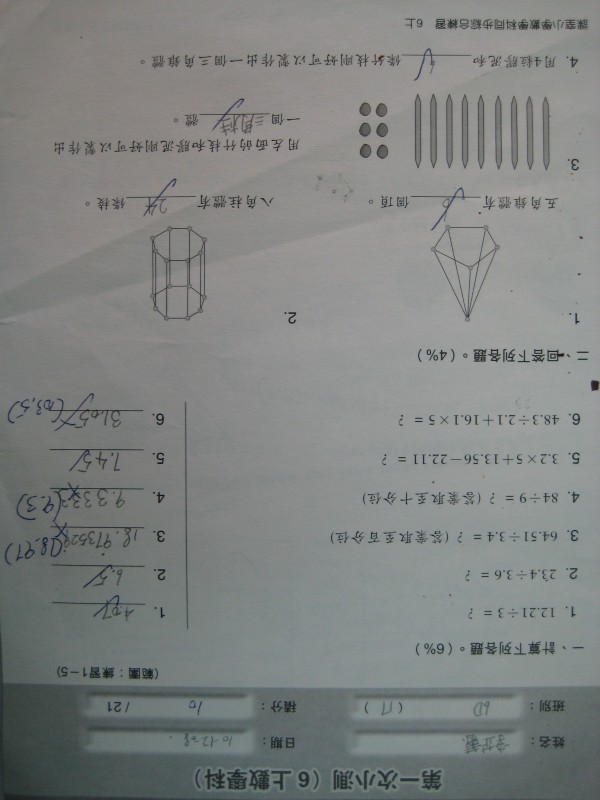 第一次小測（6上數學科）
姓名：
日期：
班別：6D（17）
積分：10 /21
（範圍：練習1－5）
一、計算下列各題。（6%）
1. 12.21÷3 = ?
2. 23.4÷3.6 = ?
3. 64.51÷3.4 = ?（答案取至百分位）
4. 84÷9 = ?（答案取至十分位）
5. 3.2×5＋13.56－22.11 = ?
6. 48.3÷2.1＋16.1×5 = ?
1. 4.07
2. 6.5
3. (18.97)
4. 9.3333 (9.3)
5. 7.45
6. (103.5)
二、回答下列各題。（4%）
1.
五角錐體有 6 個頂。
2.
八角柱體有 24 條枝。
3.
用左面的竹枝和膠泥剛好可以製作出
一個 三角柱 體。
4. 用4粒膠泥和 條竹枝剛好可以製作出一個三角錐體。
課室小學數學科同步綜合練習 6上